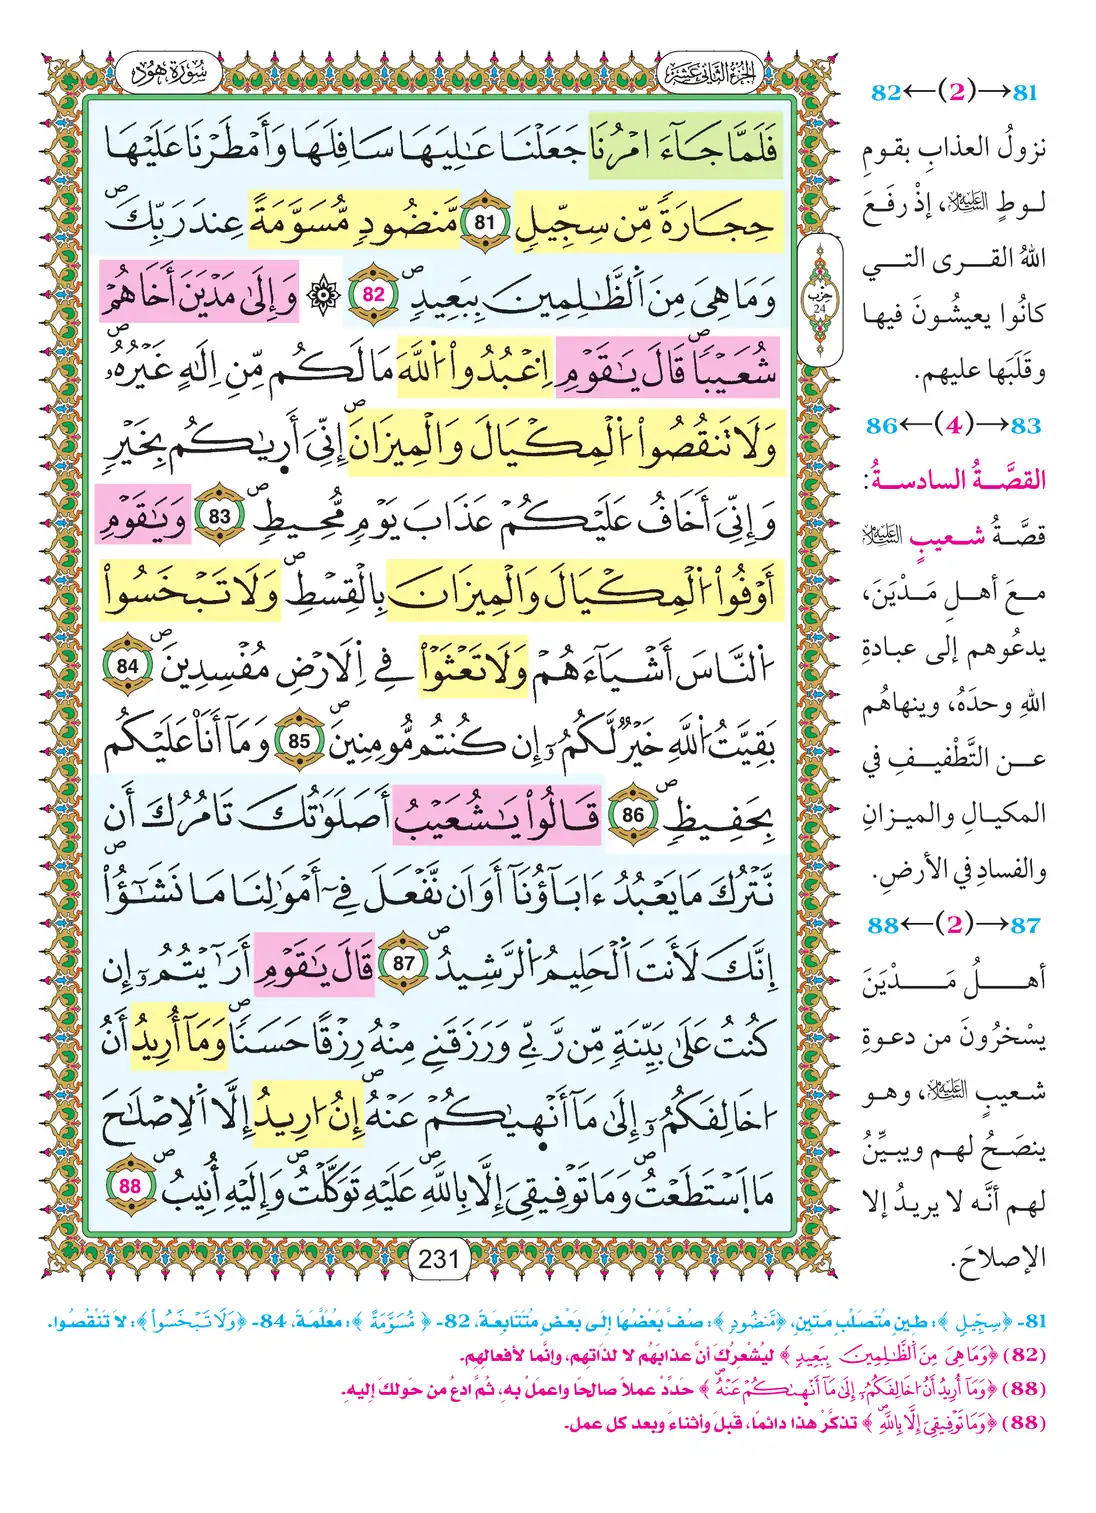 سُورَةُ هُودٍ
الجُزْءُ الثَّانِي عَشَرَ
فَلَمَّا جَآءَ امْرُنَا جَعَلْنَا عَٰلِيَهَا سَافِلَهَا وَأَمْطَرْنَا عَلَيْهَا
حِجَارَةً مِّن سِجِّيلٍ 81 مَّنضُودٍ مُّسَوَّمَةً عِندَ رَبِّكَۖ
وَمَا هِيَ مِنَ اَ۬لظَّٰلِمِينَ بِبَعِيدٍۖ 82 ۞ وَإِلَىٰ مَدْيَنَ أَخَاهُمْ
شُعَيْباٗۖ قَالَ يَٰقَوْمِ اِ۟عْبُدُواْ اُ۬للَّهَ مَا لَكُم مِّنِ اِلَٰهٍ غَيْرُهُۥۖ
وَلَا تَنقُصُواْ اُ۬لْمِكْيَالَ وَالْمِيزَانَۖ إِنِّيَ أَر۪يٰكُم بِخَيْرٖ
وَإِنِّيَ أَخَافُ عَلَيْكُمْ عَذَابَ يَوْمٖ مُّحِيطٖۖ 83 وَيَٰقَوْمِ
أَوْفُواْ اُ۬لْمِكْيَالَ وَالْمِيزَانَ بِالْقِسْطِۖ وَلَا تَبْخَسُواْ
اُ۬لنَّاسَ أَشْيَآءَهُمْ وَلَا تَعْثَوْاْ فِي اِ۬لَارْضِ مُفْسِدِينَۖ 84
بَقِيَّتُ اُ۬للَّهِ خَيْرٞ لَّكُمُۥٓ إِن كُنتُم مُّومِنِينَۖ 85 وَمَآ أَنَا۠ عَلَيْكُم
بِحَفِيظٖۖ 86 قَالُواْ يَٰشُعَيْبُ أَصَلَوَٰتُكَ تَامُرُكَ أَن
نَّتْرُكَ مَا يَعْبُدُ ءَابَآؤُنَآ أَوَ اَن نَّفْعَلَ فِيٓ أَمْوَٰلِنَا مَا نَشَٰٓؤُاْۖ
إِنَّكَ لَأَنتَ اَ۬لْحَلِيمُ اُ۬لرَّشِيدُۖ 87 قَالَ يَٰقَوْمِ أَرَٰٓيْتُمُۥٓ إِن
كُنتُ عَلَىٰ بَيِّنَةٖ مِّن رَّبِّي وَرَزَقَنِي مِنْهُ رِزْقًا حَسَنٗاۖ وَمَآ أُرِيدُ أَنُ
اخَالِفَكُمُۥٓ إِلَىٰ مَآ أَنْه۪يٰكُمْ عَنْهُۖ إِنُ ارِيدُ إِلَّا اَ۬لِاصْلَٰحَ
مَا اَ۪سْتَطَعْتُۖ وَمَا تَوْفِيقِيَ إِلَّا بِاللَّهِۖ عَلَيْهِ تَوَكَّلْتُۖ وَإِلَيْهِ أُنِيبُۖ 88
231
حِزْب
24
81→(2)←82
نزولُ العذابِ بقومِ
لـوطٍ عليه السلام، إذْ رفَـعَ
اللهُ القـرى التـي
كانُوا يعيشُونَ فيهـا
وقَلَبَها عليهم.
83→(4)←86
القصَّـةُ السادسـةُ:
قصَّـةُ شـعيبٍ عليه السلام
مـعَ أهـلِ مَـدْيَنَ،
يدعُوهم إلى عبادةِ
اللهِ وحدَهُ، وينهاهُم
عـن التَّطْفيـفِ في
المكيـالِ والميـزانِ
والفسادِ في الأرضِ.
87→(2)←88
أهـلُ مَـدْيَنَ
يسْخرُونَ من دعـوةِ
شـعيبٍ عليه السلام، وهـو
ينصَـحُ لهـم ويبيِّـنُ
لهـم أنَّـه لا يريـدُ إلا
الإصلاحَ.
81- ﴿سِجِّيلٍ﴾: طِينٍ مُتَصَلِّبٍ مَتينٍ، ﴿مَّنضُودٍ﴾: صُفَّ بَعْضُهَا إِلَى بَعْضٍ مُتَتَابِعَةً، 82- ﴿مُّسَوَّمَةً﴾: مُعَلَّمَةً، 84- ﴿وَلَا تَبْخَسُواْ﴾: لاَ تَنْقُصُوا.
(82) ﴿وَمَا هِيَ مِنَ اَ۬لظَّٰلِمِينَ بِبَعِيدٍ﴾ ليُشْعِرُكَ أنَّ عذابَهُم لا لذاتِهم، وإنَّما لأفعالِهِم.
(88) ﴿وَمَآ أُرِيدُ أَنُ اخَالِفَكُمُۥٓ إِلَىٰ مَآ أَنْه۪يٰكُمْ عَنْهُۖ﴾ حَدِّدْ عملاً صالحًا واعملْ به، ثُمَّ ادعُ من حَولكَ إليه.
(88) ﴿وَمَا تَوْفِيقِيَ إِلَّا بِاللَّهِۖ﴾ تذكَّرْ هذا دائمًا، قَبلَ وأثناءَ وبعد كل عمل.